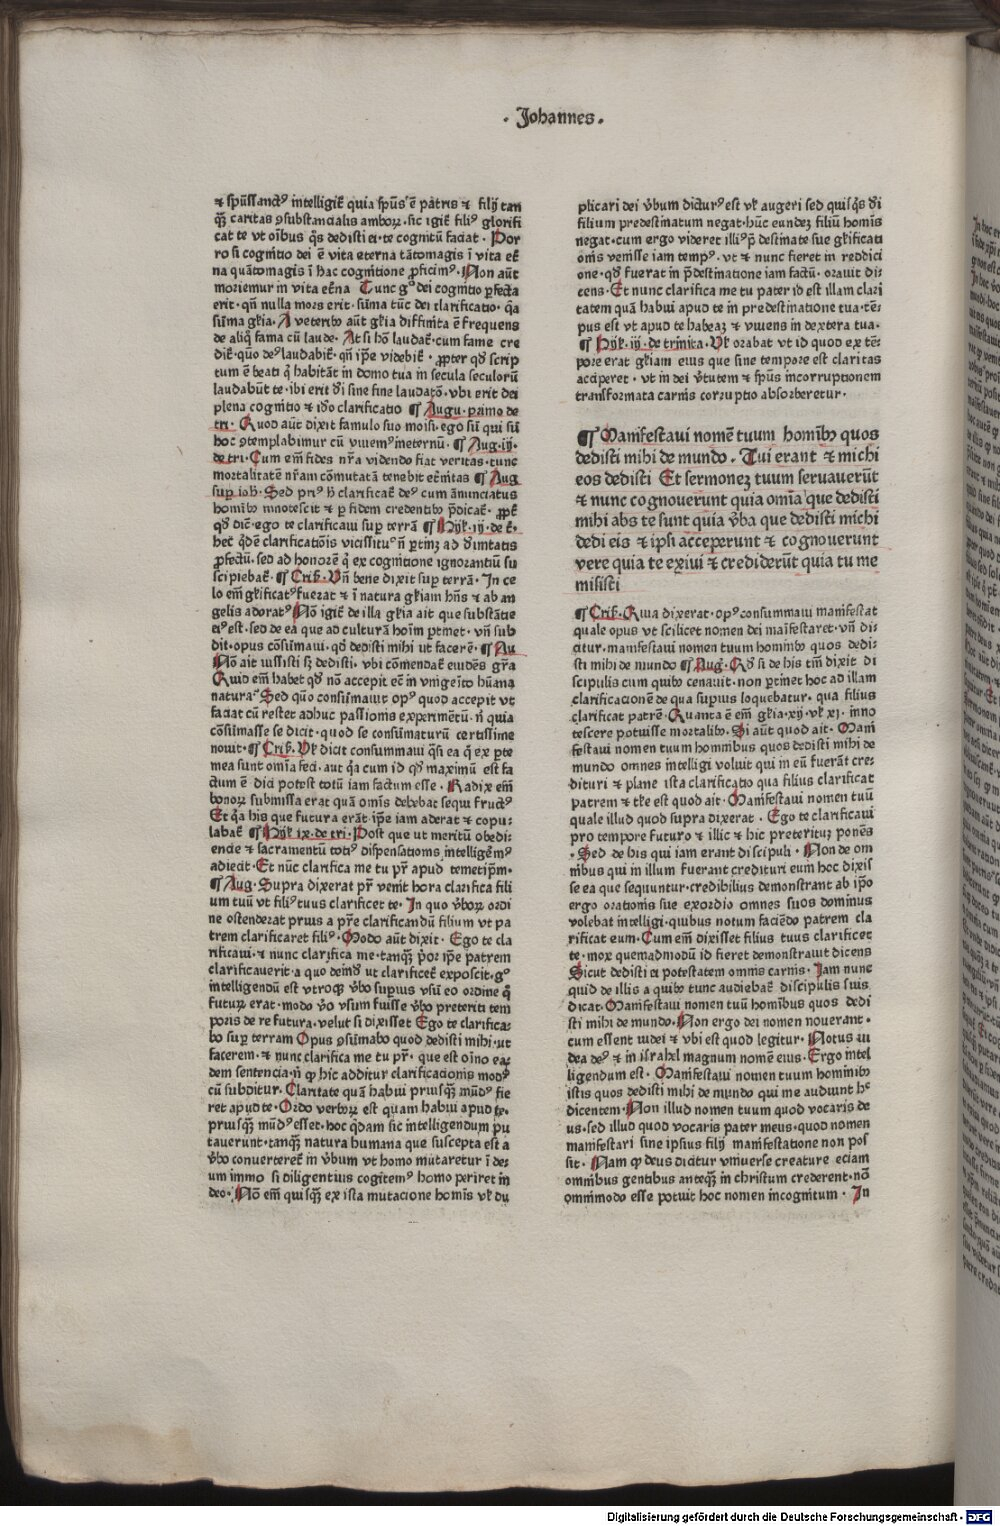 · Johannes ·
⁊ sp̄ussanctꝰ intelligit̄ quia sp̄us ē patris ⁊ filij tan
qꝫ caritas ꝯsubstancialis amboꝝ. sic igit̄ filiꝰ glorifi
cat te vt oībus q̄s dedisti ei. te cognitū faciat · Por
ro si cognitio dei ē vita eterna tātomagis ī vita et̄
na quātomagis ī hac cognitione ꝓficimꝰ. Non aūt
moriemur in vita et̄na Tunc gͦ dei cognitio ꝑfecta
erit · qn̄ nulla mors erit · sūma tūc dei clarificatio · q̄a
sūma gl̄ia. A veterib̄ aūt gl̄ia diffinita ē frequens
de aliq̄ fama cū laude. At si hō laudat̄. cum fame cre
dit̄. quō deꝰ laudabit̄. qn̄ ip̄e videbit̄ · ꝓpter qd̄ scrip
tum ē beati q̄ habitāt in domo tua in secula seculorū
laudabūt te · ibi erit dī sine fine laudatō. vbi erit dei
plena cognitio ⁊ iō clarificatio ¶ Augu. primo de
tri · Quod aūt dixit famulo suo moisi. ego sū qui sū
hoc ꝯtemplabimur cū viuemꝰ ineternū. ¶ Aug. iij.
de tri. Cum em̄ fides nr̄a videndo fiat veritas. tunc
mortalitatē nr̄am cōmutatā tenebit et̄nitas ¶ Aug
sup̄ ioh̄. Sed priꝰ h̄ clarificat̄ deꝰ cum ānunciatus
homīb̄ innotescit ⁊ ꝑ fidem credentib̄ p̄dicat̄. ꝓpt̄
qd̄ dic̄. ego te clarificaui sup̄ terrā ¶ Hyl̄. iij. de t̄.
hec q̄dē clarificatiōis vicissitu° n̄ ꝑtinꝫ ad diuinitatis
ꝓfectū. sed ad honorē q̄ ex cognitione ignorantiū su
scipiebat̄. ¶ Crisꝰ. Vn̄ bene dixit sup̄ terrā. In ce
lo em̄ gl̄ificatꝰ fuerat ⁊ ī natura gl̄iam hn̄s ⁊ ab an
gelis adoratꝰ Nō igit̄ de illa gl̄ia ait que substātie
eiꝰ est. sed de ea que ad culturā hoīm ꝑtinet · vn̄ sub
dit. opus cōsūmaui. qd̄ dedisti mihi ut facerē. ¶ Au
Nō ait iussisti sꝫ dedisti. vbi cōmendat̄ euidēs gr̄a
Quid em̄ habet qd̄ nō accepit ec̄ in vnigeīto hūana
natura° Sed quō cōsūmauit opꝰ quod accepit vt
faciat cū restet adhuc passionis experimētū. n̄ quia
cōsūmasse se dicit · quod se cōsūmaturū certissime
nouit. ¶ Crisꝰ. Vl̄ dicit consummaui q̄si ea q̄ ex ꝑte
mea sunt om̄ia feci. aut q̄a cum id qd̄ maximū est fa
ctum ē dici potest totū iam factum esse · Radix em̄
bonoꝝ submissa erat quā om̄is debebat sequi fructꝰ
Et q̄a his que futura erāt. ip̄e iam aderat ⁊ copu-
labat̄ ¶ Hyl̄. ix. de tri. Post que ut meritū obedi-
encie ⁊ sacramentū totiꝰ dispensationis intelligem̄ꝰ
adiecit · Et nūc clarifica me tu pr̄ apud temetip̄m.
¶ Aug. Supra dixerat pr̄ venit hora clarifica fili
um tuū vt filiꝰ tuus clarificet te · In quo v̄boꝝ ordi
ne ostenderat prius a pr̄e clarificandū filium vt pa
trem clarificaret filiꝰ. Modo aūt dixit · Ego te cla
rificaui. ⁊ nunc clarifica me. tanqꝫ p̄or ip̄e patrem
clarificauerit. a quo deinde ut clarificet̄ exposcit. gͦ
intelligendū est vtroqꝫ v̄bo supius vsū eo ordine q̄
futuꝝ erat. modo v̄o vsum fuisse v̄bo preteriti tem
poris de re futura. velut si dixisset Ego te clarifica-
bo sup̄ terram Opus ꝯsūmabo quod dedisti mihi. ut
facerem. ⁊ nunc clarifica me tu pr̄. que est oīno ea-
dem sentencia. n̄ ꝙ hic additur clarificacionis modꝰ
cū subditur. Claritate quā habui priusqꝫ mūdꝰ fie
ret apud te. Ordo verboꝝ est quam habui apud te.
priusqꝫ mūdꝰ esset. hoc q̄dam sic intelligendum pu
tauerunt. tanqꝫ natura humana que suscepta est a
v̄bo conuerteret̄ in v̄bum vt homo mutaretur ī de-
um immo si diligentius cogitemꝰ homo periret in
deo. Nō em̄ quisqꝫ ex ista mutacione homīs vl̄ du
plicari dei v̄bum dicturꝰ est vl̄ augeri sed quisq̄s dī
filium predestinatum negat. hūc eundeꝫ filiū homīs
negat. cum ergo videret illiꝰ p̄destinate sue gl̄ificati
onis venisse iam tempꝰ. vt ⁊ nunc fieret in reddici
one. qd̄ fuerat in p̄destinatione iam factū. orauit di-
cens. Et nunc clarifica me tu pater id est illam clari
tatem quā habui apud te in predestinatione tua. tē-
pus est vt apud te habeaꝫ ⁊ viuens in dextera tua.
¶ Hyl̄. iij. de trinita. Vl̄ orabat vt id quod ex tē-
pore erat gl̄iam eius que sine tempore est claritas
acciperet · vt in dei v̄tutem ⁊ sp̄us incorruptionem
transformata carnis corruptio absorberetur.
¶ Manifestaui nomē tuum homīb̄ quos
dedisti mihi de mundo. Tui erant ⁊ michi
eos dedisti Et sermoneꝫ tuum seruauerūt
⁊ nunc cognouerunt quia om̄ia que dedisti
mihi abs te sunt quia v̄ba que dedisti michi
dedi eis ⁊ ipsi acceperunt ⁊ cognouerunt
vere quia te exiui ⁊ crediderūt quia tu me
misisti
¶ Crisꝰ. Quia dixerat. opꝰ consummaui manifestat
quale opus vt scilicet nomen dei maīfestaret. vn̄ di-
citur. manifestaui nomen tuum hominib̄ quos dedi-
sti mihi de mundo ¶ Augꝰ. Qd̄ si de his tm̄ dixit di
scipulis cum quib̄ cenauit. non ꝑtinet hoc ad illam
clarificacionē de qua supius loquebatur. qua filius
clarificat patrē. Quanta ē em̄ gl̄ia. xij. vl̄ xj. inno
tescere potuisse mortalib̄. Si aūt quod ait. Mani
festaui nomen tuum hominibus quos dedisti mihi de
mundo omnes intelligi voluit qui in eū fuerāt cre-
dituri ⁊ plane ista clarificatio qua filius clarificat
patrem ⁊ tl̄e est quod ait. Manifestaui nomen tuū
quale illud quod supra dixerat. Ego te clarificaui
pro tempore futuro ⁊ illic ⁊ hic preterituꝫ ponēs
· Sed de his qui iam erant discipuli · Non de om
nibus qui in illum fuerant credituri eum hoc dixis
se ea que sequuntur. credibilius demonstrant ab ip̄o
ergo orationis sue exordio omnes suos dominus
volebat intelligi. quibus notum faciēdo patrem cla
rificat eum. Cum em̄ dixisset filius tuus clarificet
te. mox quemadmodū id fieret demonstrauit dicens
Sicut dedisti ei potestatem omnis carnis. Iam nunc
quid de illis a quib̄ tunc audiebat̄ discipulis suis
dicat. Manifestaui nomen tuū homībus quos dedi
sti mihi de mundo. Non ergo dei nomen nouerant.
cum essent iudei ⁊ vbi est quod legitur. Notus in iu
dea deꝰ ⁊ in israhel magnum nomē eius. Ergo intel
ligendum est. Manifestaui nomen tuum hominib̄
istis quos dedisti mihi de mundo qui me audiunt hec
dicentem. Non illud nomen tuum quod vocaris de
us. sed illud quod vocaris pater meus. quod nomen
manifestari sine ipsius filij manifestatione non pos
sit. Nam ꝙ deus dicitur vniuerse creature eciam
omnibus gentibus anteqꝫ in christum crederent. nō
omnimodo esse potuit hoc nomen incognitum. In
Digitalisierung gefördert durch die Deutsche Forschungsgemeinschaft - DFG